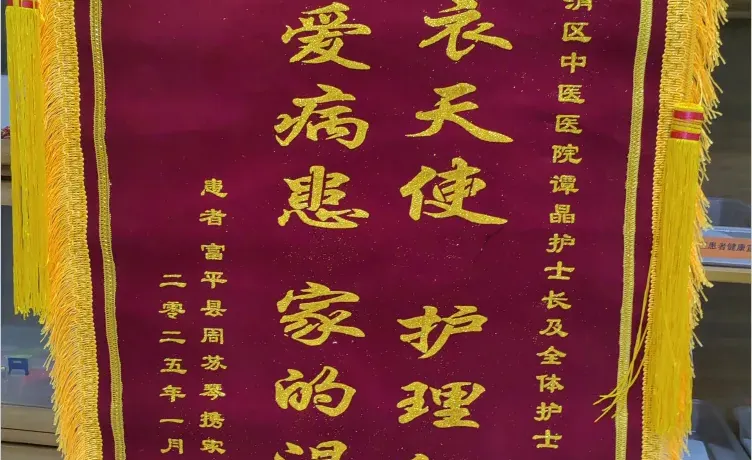 渭区中医医院谭晶护士长及全体护士
衣天使 护理
爱病患 家的温
患者 富平县周苏琴携家
二零二五年一月
患者健康